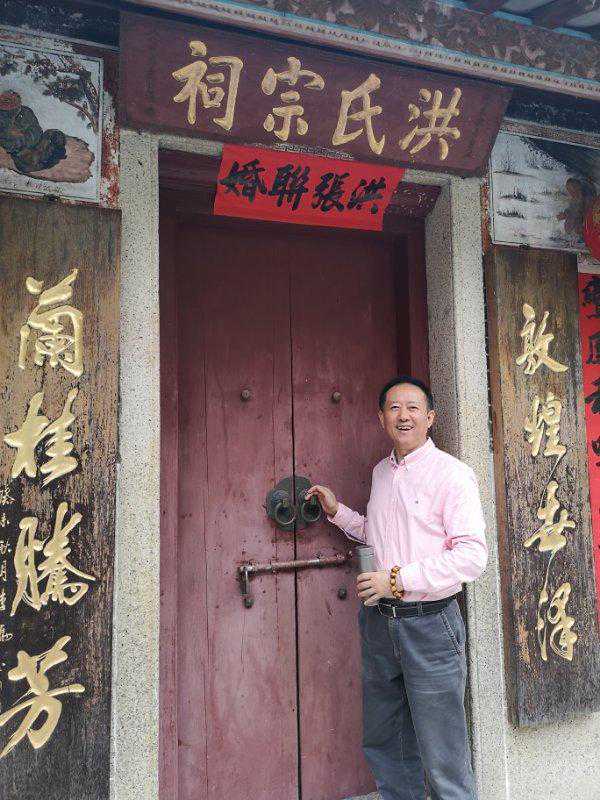 洪氏宗祠
洪張聯婚
敦煌春泽
蘭桂騰芳